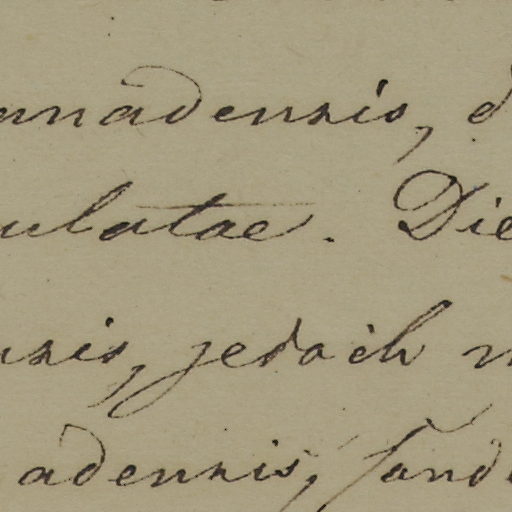 nnadensis, d
ulatae. Die
nsis, jedoch n
adensis, sond